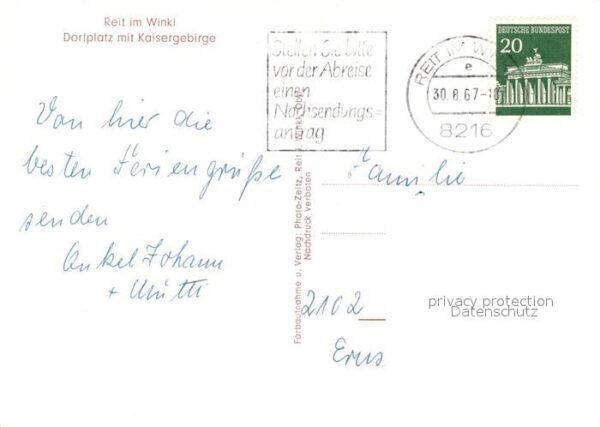 Reit im Winkl
Dorfplatz mit Kaisergebirge
Stellen Sie bitte
vor der Abreise
einen
Nachsendungs=
antrag
REIT IM WINKL
e
30.8.67-18
8216
DEUTSCHE BUNDESPOST
20
Von hier die
besten Feriengrüße
senden
Onkel Johann
+ Mutti
Farbaufnahme u. Verlag: Photo-Zeitz, Reit i. Winkl/Obb.
Nachdruck verboten
Familie
2102
privacy protection
Datenschutz